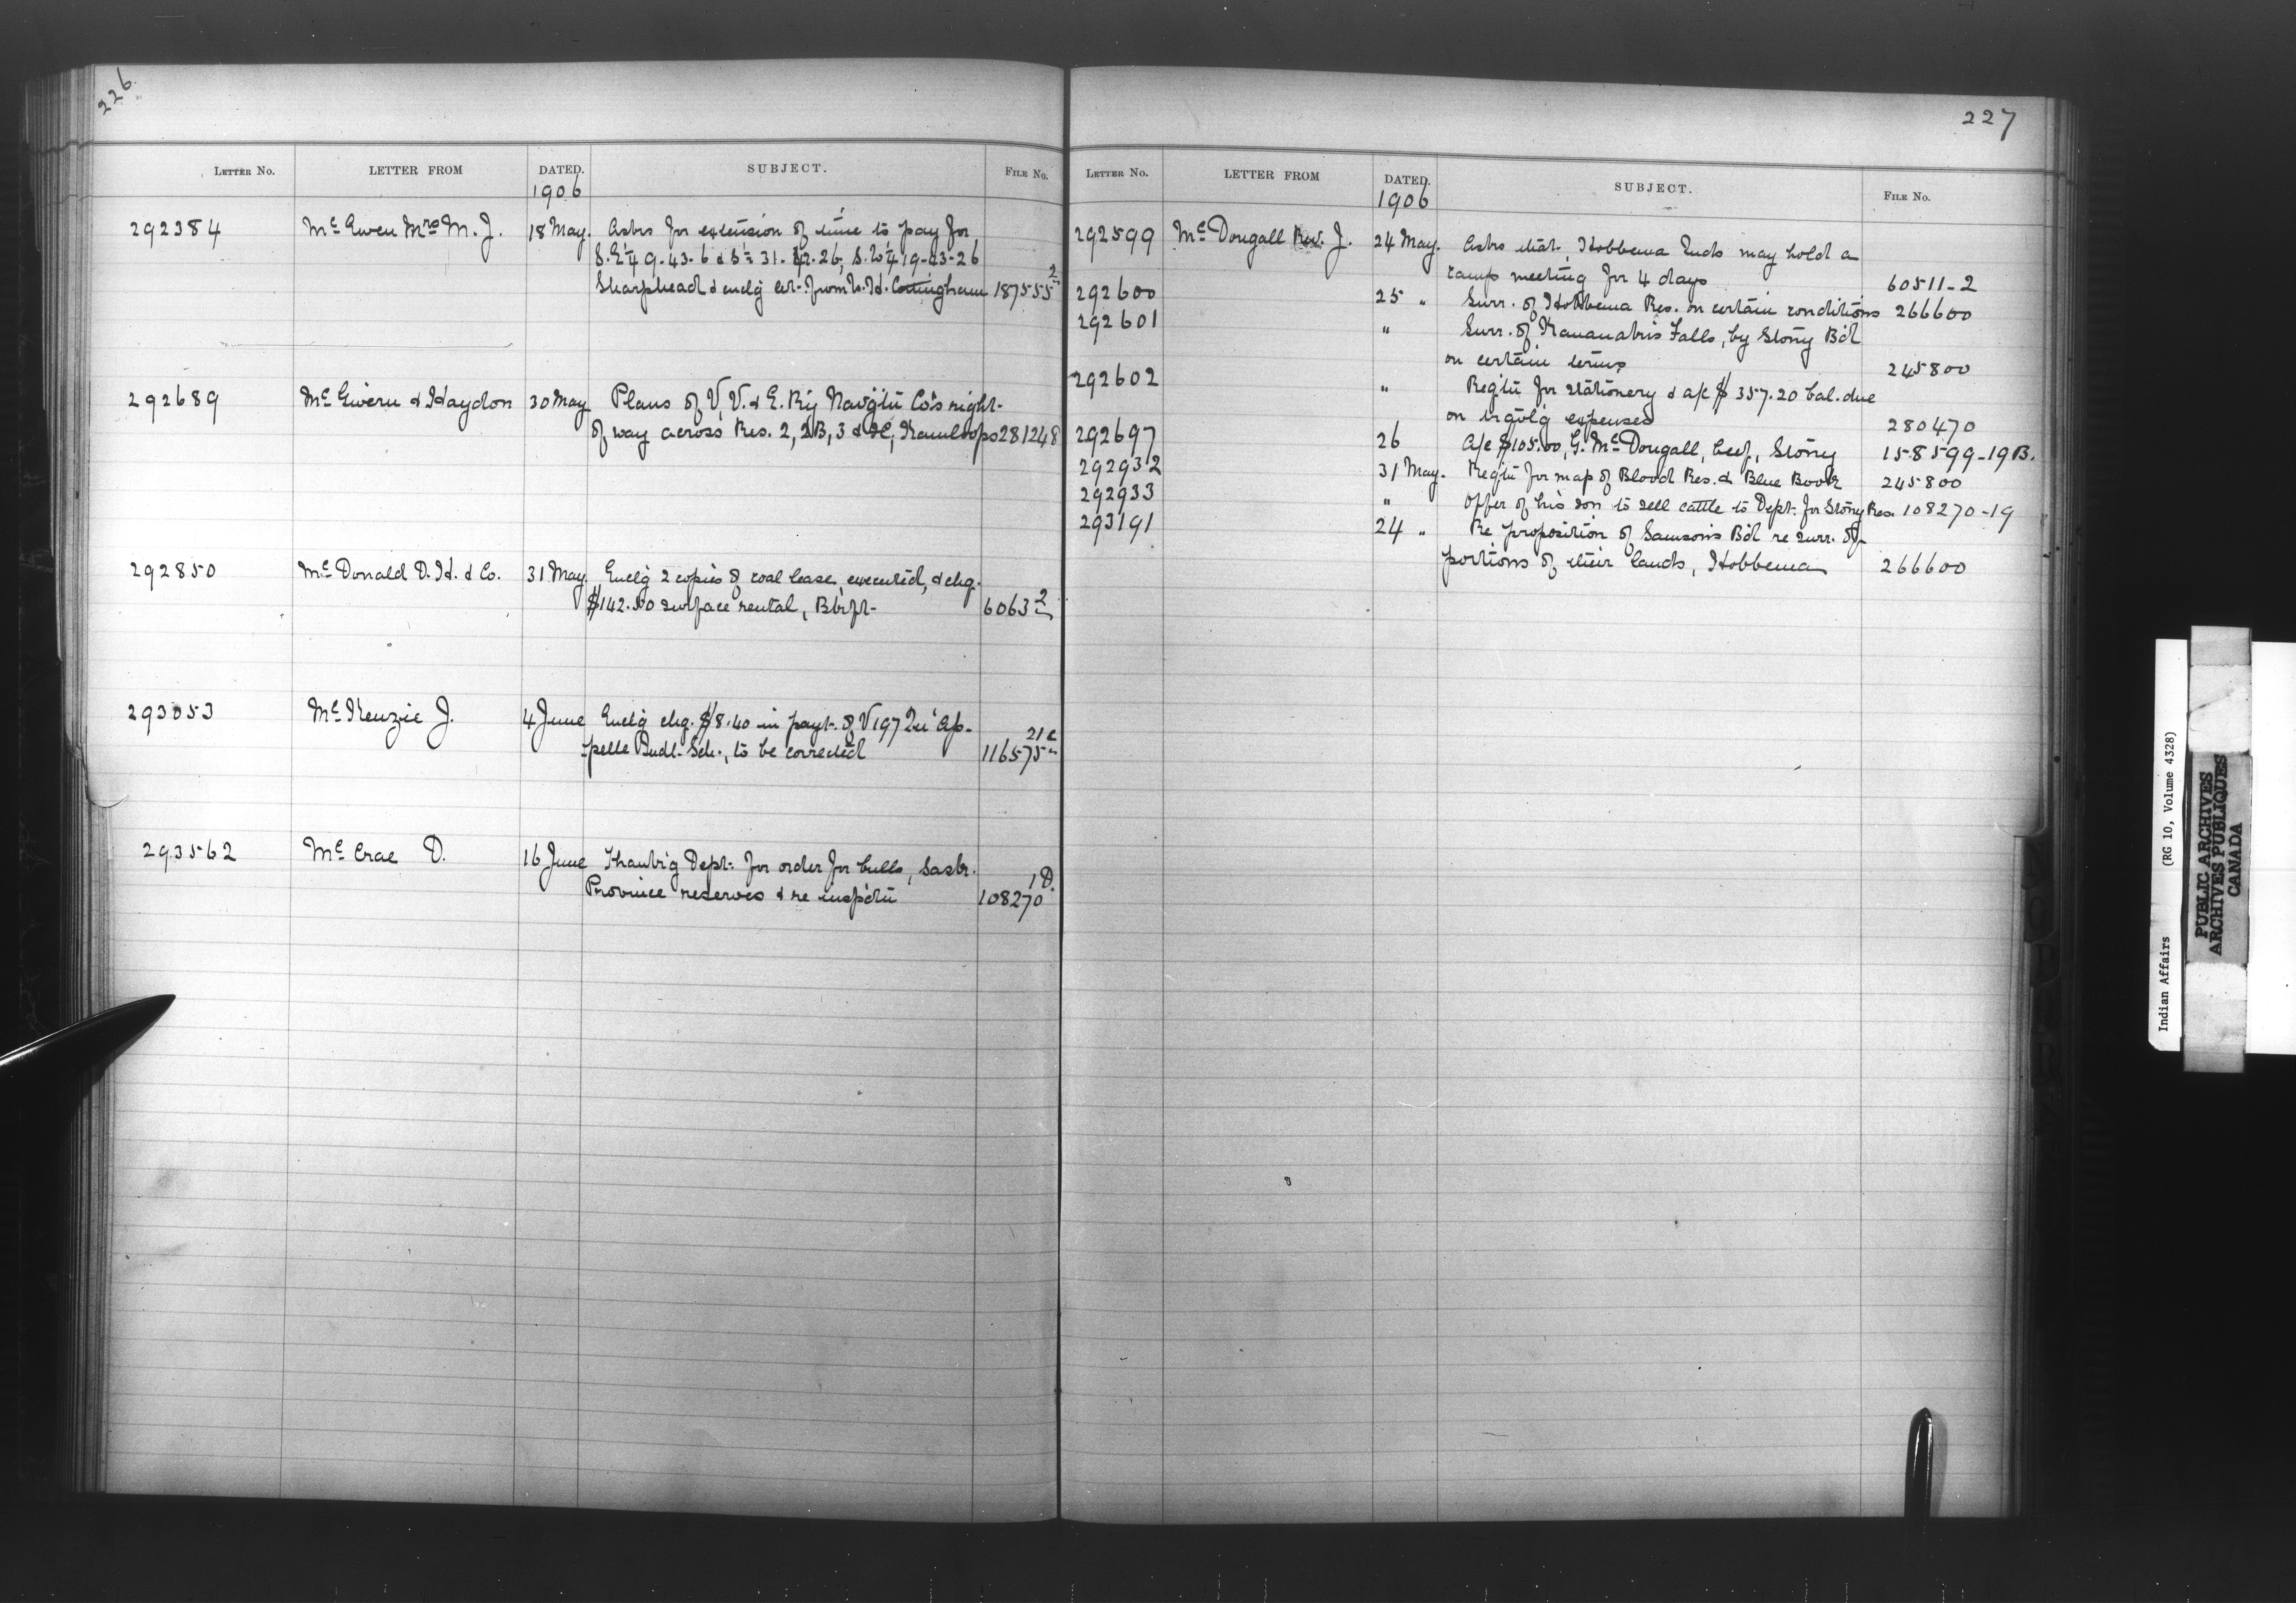 226
Letter No. LETTER FROM DATED. SUBJECT. File No.
1906
292384 McEwen Mrs M. J. 18 May. Asks for extension of time to pay for
S.E¼ 9-43-6 & S½ 31-42-26, S.W¼ 19-43-26
Sharphead & enclg let. from W. H. Cottingham 187555-2
292689 McGivern & Haydon 30 May Plans of V, V. & E. Ry Navig'tn Co's right-
of way across Res. 2, 2B, 3 & 3C, Kamloops 281248
292850 McDonald D. H. & Co. 31 May. Enclg 2 copies of coal lease executed, & chq.
$142.50 surface rental, Bkft- 6063-2
293053 McKenzie J. 4 June Enclg chq. $8.40 in payt. of V 197 Qu'Ap-
pelle Indl. Sch., to be corrected 116575-21c
293562 McCrae D. 16 June Thank'g Dept. for order for bulls, Sask.
Province reserves & re insp'ctn 108270-1D.
227
Letter No. LETTER FROM DATED. SUBJECT. File No.
1906
292599 McDougall Rev. J. 24 May. Asks that, Hobbema Inds may hold a
camp meeting for 4 days 60511-2
292600 25 " Surr. of Hobbema Res. on certain conditions 266600
292601 " Surr. of Kananaskis Falls, by Stony B'd
on certain terms 245800
292602 " Req'tn for stationery & a/c $357.20 bal. due
on trav'lg expenses 280470
292697 26 A/c $105.00, G. McDougall, beef, Stony 158599-19B.
292932 31 May. Req'tn for map of Blood Res. & Blue Book 245800
292933 " Offer of his son to sell cattle to Dept. for Stony Res. 108270-19
293191 24 " Re proposition of Samson's B'd re surr. of
portions of their lands, Hobbema 266600
Indian Affairs (RG 10, Volume 4328)
PUBLIC ARCHIVES
ARCHIVES PUBLIQUES
CANADA